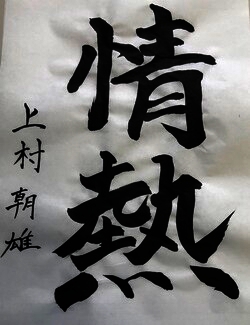 情熱
上村朝雄